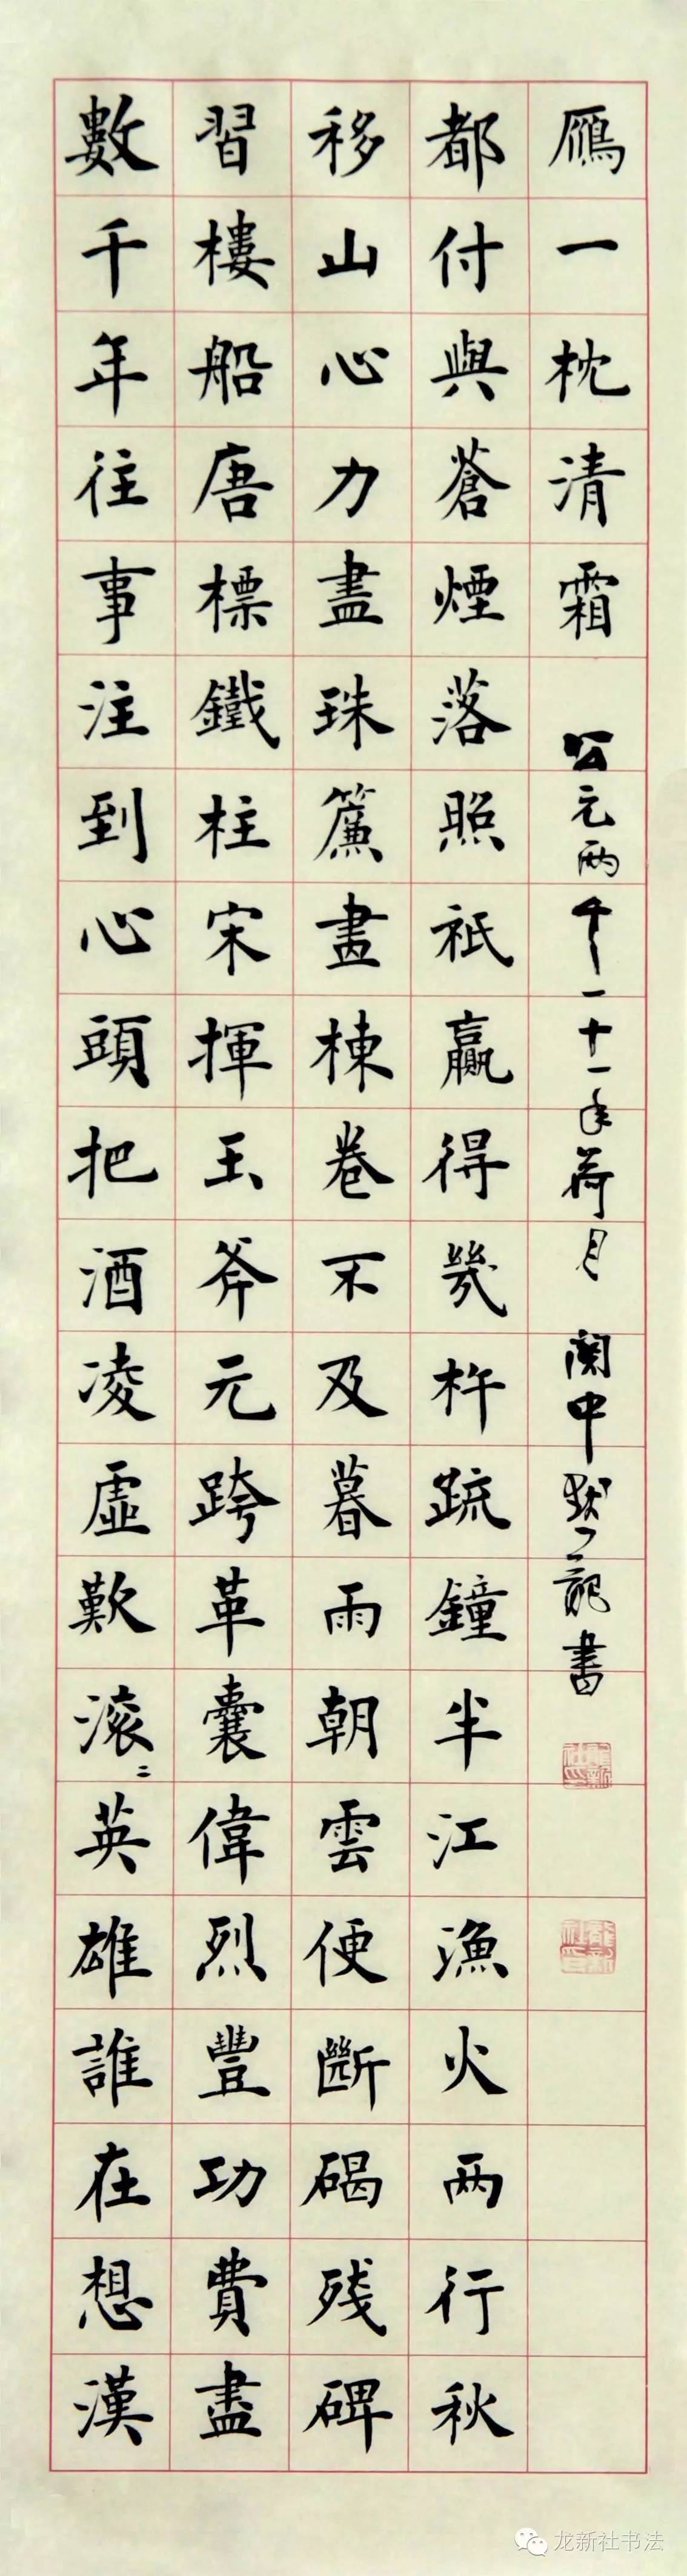 數千年往事注到心頭把酒凌虛歎滾〻英雄誰在想漢
習樓船唐標鐵柱宋揮玉斧元跨革囊偉烈豐功費盡
移山心力盡珠簾畫棟卷不及暮雨朝雲便斷碣残碑
都付與蒼煙落照祇贏得幾杵疏鐘半江漁火两行秋
鴈一枕清霜
公元两千一十一年荷月 關中 龍書
龙新社书法